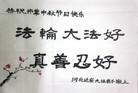 恭祝师尊中秋节日快乐
法輪大法好
真善忍好
河北法轮大法弟子敬上